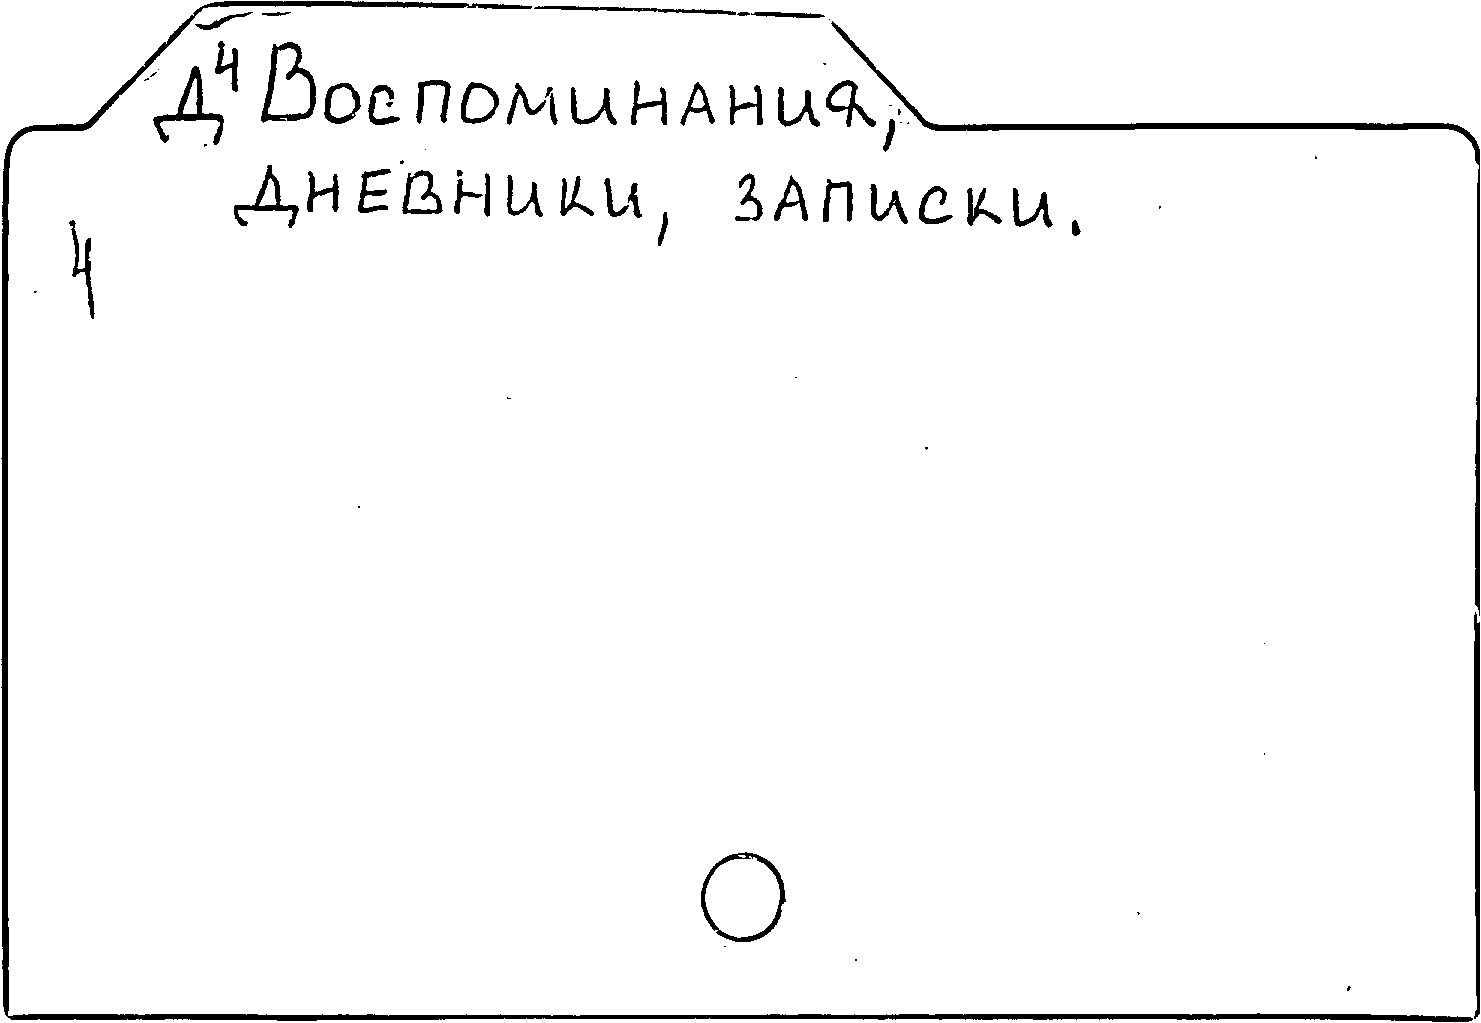 Д⁴ Воспоминания,
дневники, записки.
4